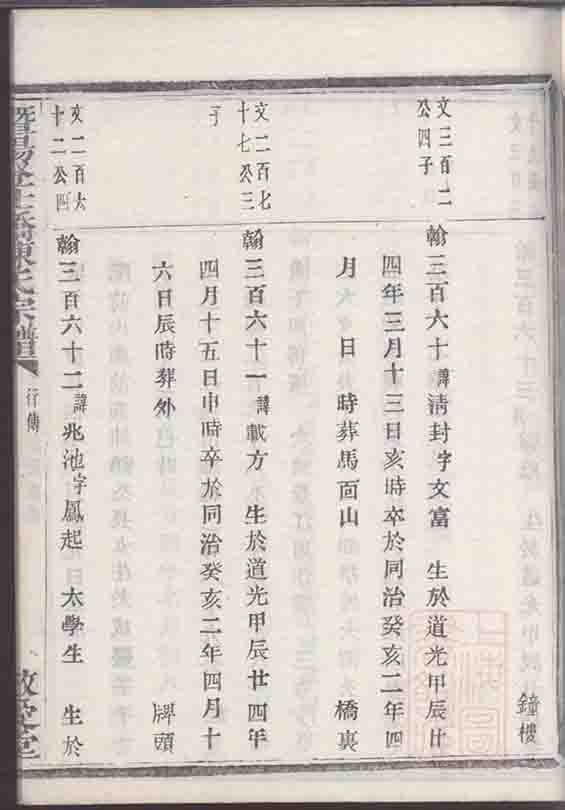 鐘樓
文三百二
公四子
翰三百六十諱淸封字文富 生於道光甲辰廿
四年三月十三日亥時卒於同治癸亥二年四
月 日 時葬馬面山 橋裏
文二百七
十七公三
子
翰三百六十一諱載方 生於道光甲辰廿四年
四月十五日申時卒於同治癸亥二年四月十
六日辰時葬外 牌頭
文二百六
十二公四
翰三百六十二諱兆池字鳳起 太學生 生於
陳氏宗譜
行傳